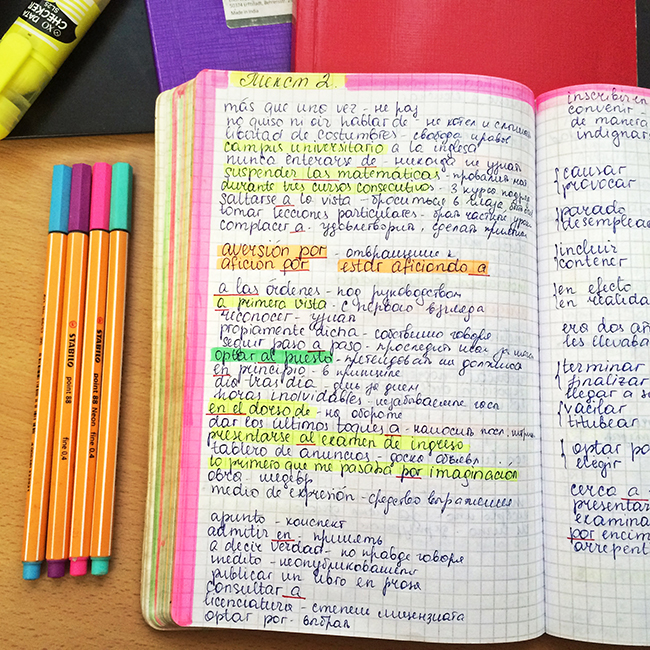 OXO DATA
CHECKER
SL25
Made in India
Текст 2
más que uno vez - не раз
no quiso ni oir hablar de - не хотел и слышать
libertad de costumbres - свобода нравов
campus universitario a la inglesa
nunca enterarse de - никогда не узнал
suspender las matemáticas - провалил
durante tres cursos consecutivos - 3 курса подряд
saltarse a la vista - броситься в глаза
tomar lecciones particulares - брал частные уроки
complacer a - удовлетворить, сделать приятное
aversión por - отвращение к
afición por estar aficiando a
a las órdenes - под руководством
a primera vista - с первого взгляда
reconocer - узнал
propiamente dicha - собственно говоря
seguir paso a paso - проследить шаг за шагом
optar al puesto - претендовать на должность
en principio - в принципе
dia tras dia - день за днем
horas inolvidables - незабываемые часы
en el dorso de - на обороте
dar los últimos toques a - наносить посл. штрихи
presentarse al examen de ingreso
tablero de anuncios - доска объявл
lo primero que me pasaba por imaginación
obra - шедевр
medio de expresión - средство выражения
apunto - конспект
admitir en - принять
a decir verdad - по правде говоря
inédito - неопубликованный
publicar un libro en prosa
consultar a
licenciatura - степень лиценциата
optar por - выбрал
inscribir en
convenir
de manera
indignar
causar
provocar
parado
desempleado
incluir
contener
en efecto
en realidad
era dos añ
les llevaba
terminar
finalizar
llegar a s
vacilar
titubear
optar po
elegir
cerca a
presentar
examina
por encim
arrepent
STABILO
point 88
fine 0.4
STABILO
point 88 Neon
fine 0.4